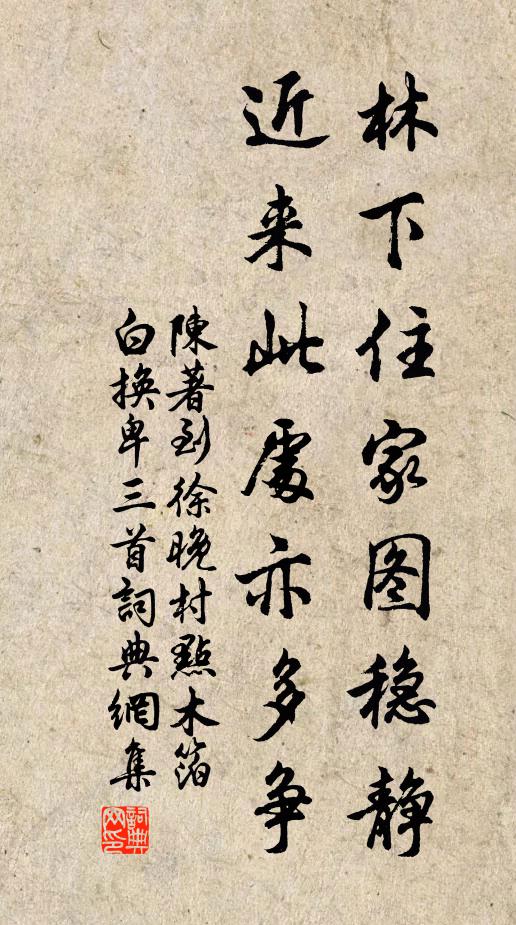 林下住家图稳静
近来此處亦多争
陳著到徐晚村點木箔
白換卑三首詞典網集
詞典網印